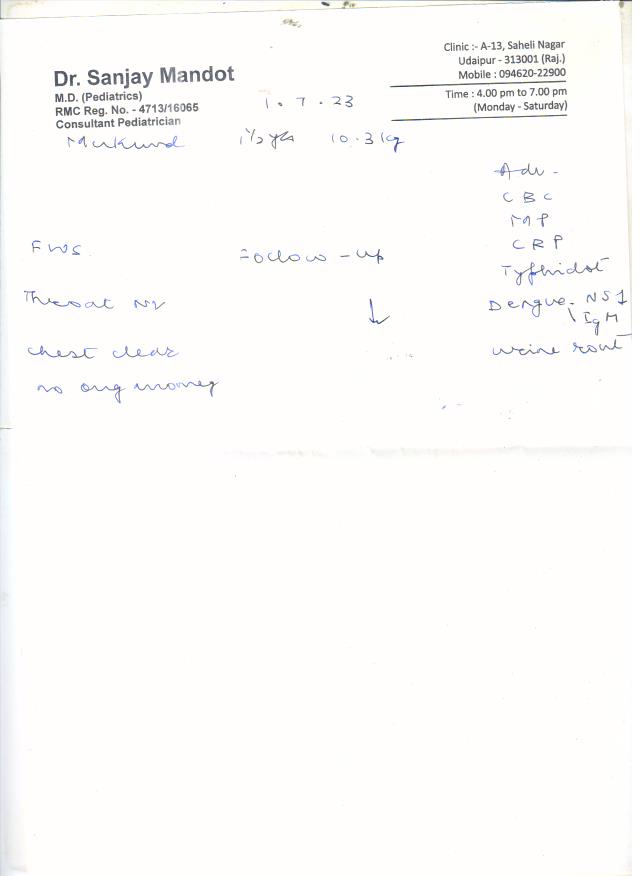 Dr. Sanjay Mandot
M.D. (Pediatrics)
RMC Reg. No. - 4713/16065
Consultant Pediatrician
Clinic :- A-13, Saheli Nagar
Udaipur - 313001 (Raj.)
Mobile : 094620-22900
Time : 4.00 pm to 7.00 pm
(Monday - Saturday)
1.7.23
Mukund 1½ yrs 10.3 kg
Adv -
CBC
MP
CRP
Typhidot
Dengue - NS1
IgM
urine rout
FWS
Follow-up
Throat
chest clear
no